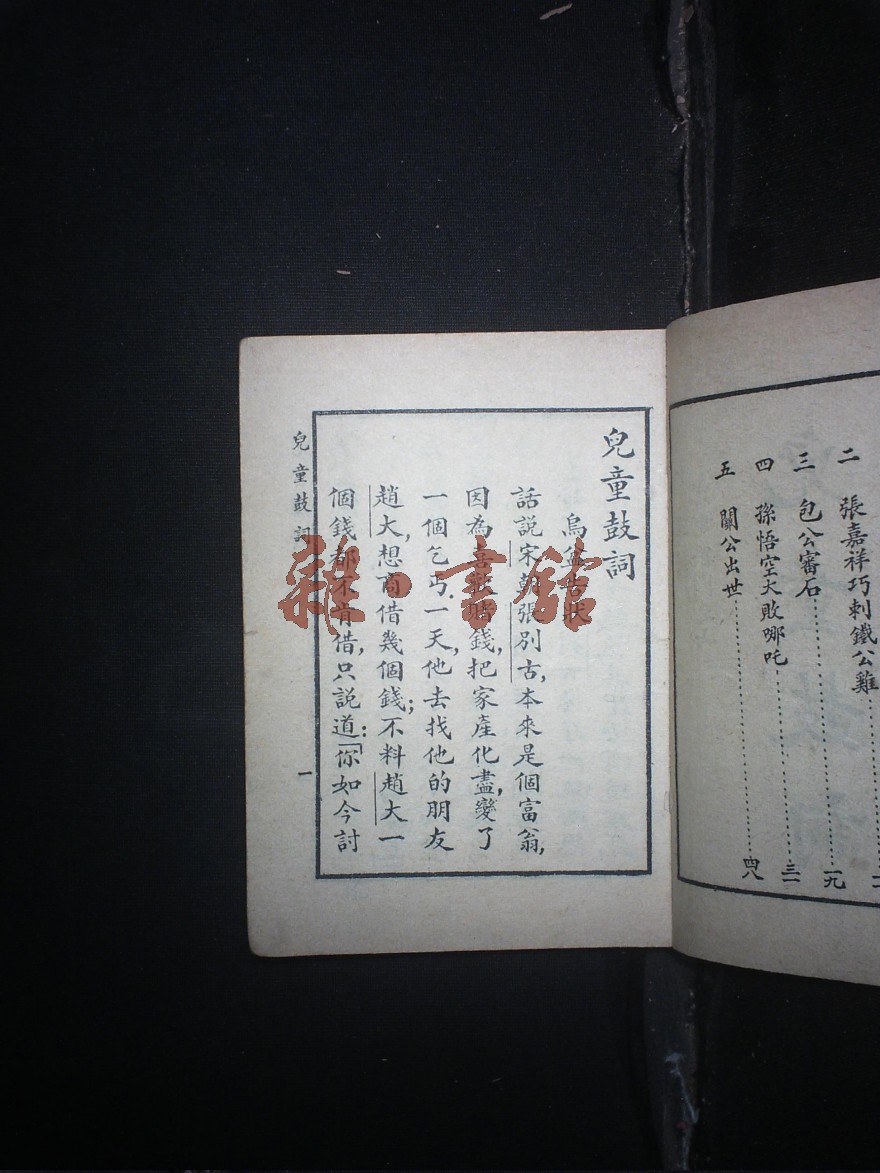 二 張嘉祥巧刺鐵公雞
三 包公審石……一九
四 孫悟空大敗哪吒……三一
五 關公出世……四八
兒童鼓詞
烏盆告狀
話說宋朝張別古,本來是個富翁,
因為喜歡賭錢,把家產化盡,變了
一個乞丐.一天,他去找他的朋友
趙大,想商借幾個錢;不料趙大一
個錢都不肯借,只說道:「你如今討
兒童鼓詞 一
雜·書館